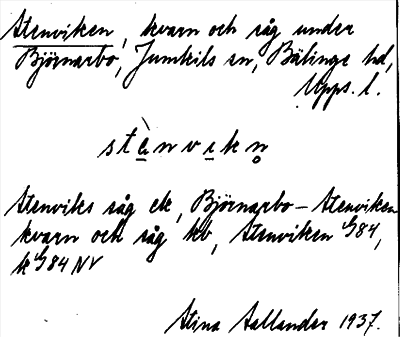 Stenviken, kvarn och såg under
Björnarbo, Jumkils sn, Bälinge hd,
Upps. l.
stènvikn̥
Stenviks såg ek, Björnarbo – Stenviken
kvarn och såg kb, Stenviken G84,
k G84 NV
Stina Sallander 1937.